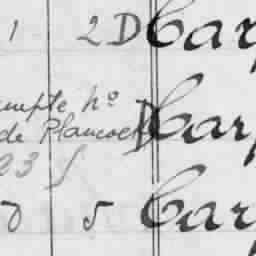 1 2 D Car
ompte no
de Plancoët D Car
23 f
0 5 Car